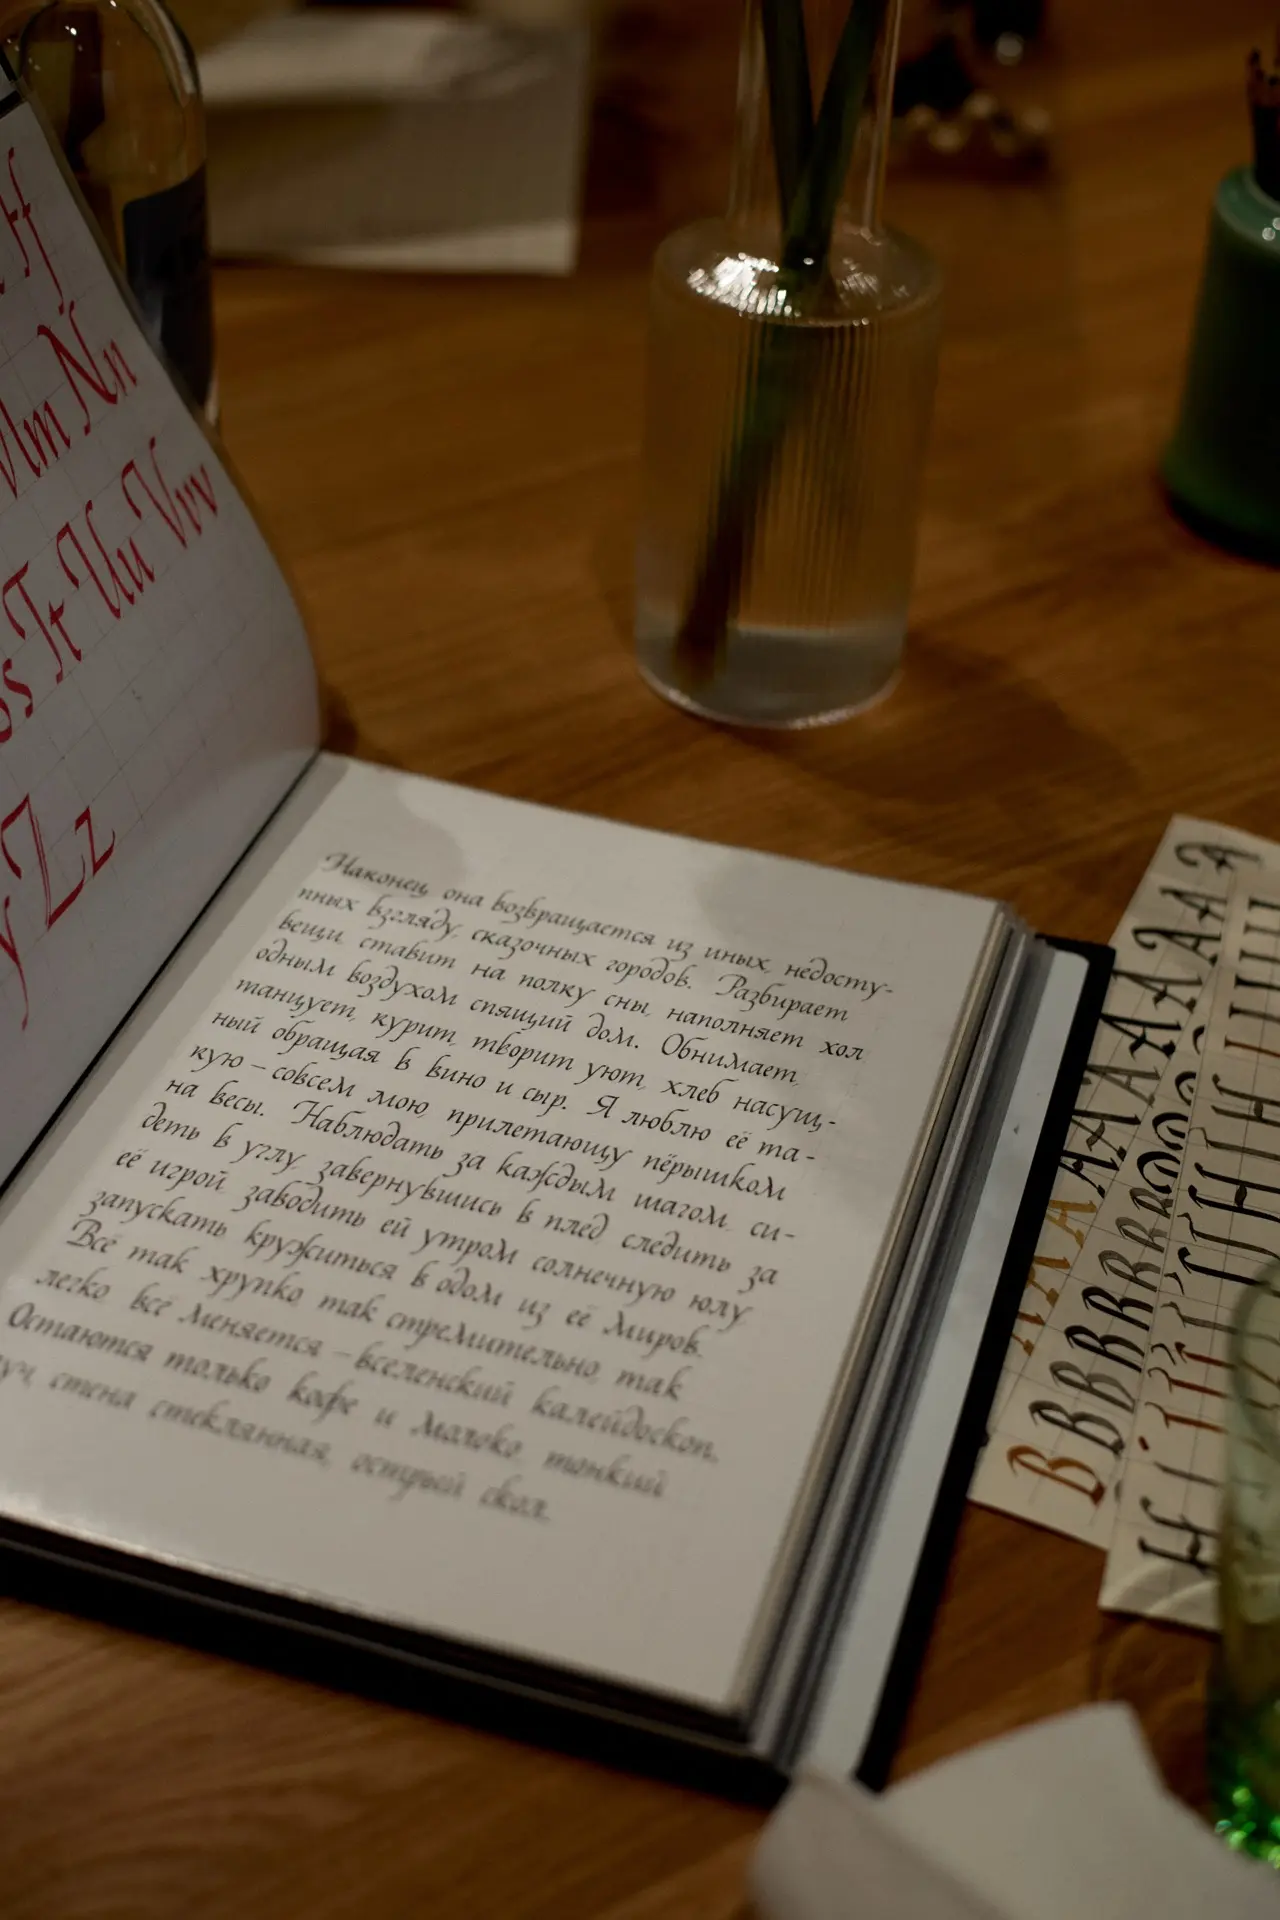 H
Mm Nn
s Tt Uu Vvv
y Zz
Наконец, она возвращается из иных, недосту-
пных взгляду, сказочных городов. Разбирает
вещи, ставит на полку сны, наполняет хол
одным воздухом спящий дом. Обнимает,
танцует, курит, творит уют, хлеб насущ-
ный обращая в вино и сыр. Я люблю её та-
кую – совсем мою, прилетающу пёрышком
на весы. Наблюдать за каждым шагом, си-
деть в углу, завернувшись в плед, следить за
её игрой, заводить ей утром солнечную юлу,
запускать кружиться в одом из её миров.
Всё так хрупко, так стремительно, так
легко всё меняется – вселенский калейдоскоп.
Остаются только кофе и молоко, тонкий
луч, стена стеклянная, острый скол.
AAAAAAAA
BBBBBB